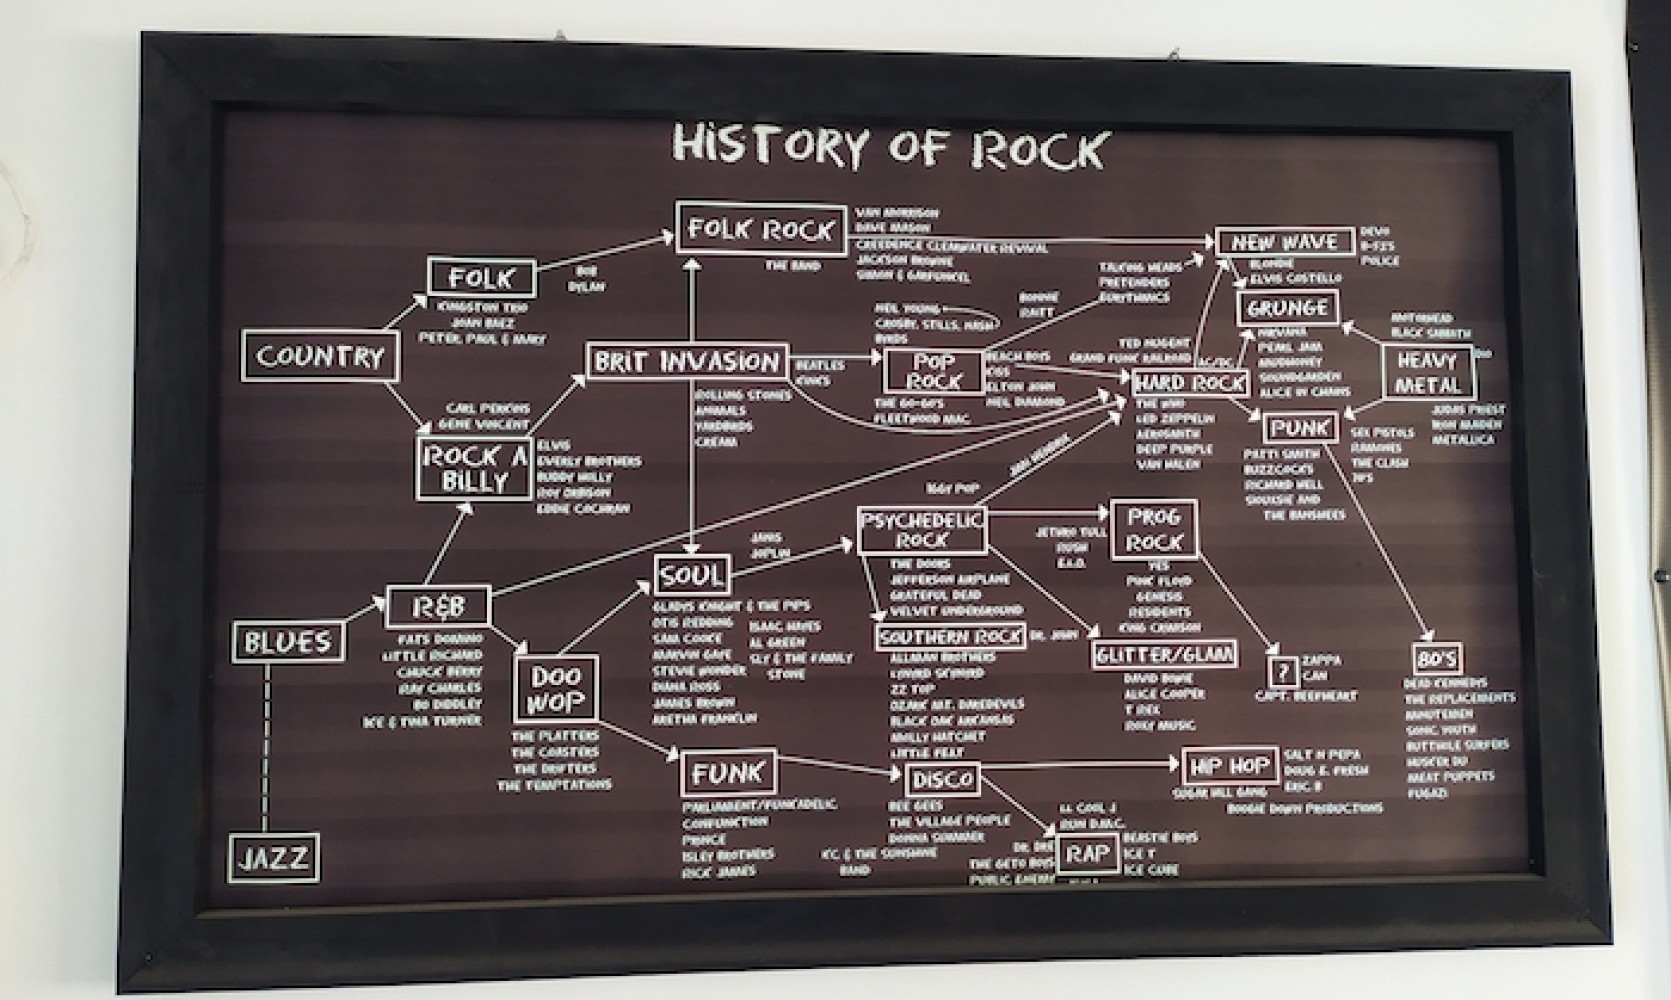 HISTORY OF ROCK
FOLK ROCK
VAN MORRISON
DAVE MASON
CREEDENCE CLEARWATER REVIVAL
JACKSON BROWNE
SIMON & GARFUNKEL
THE BAND
NEW WAVE
DEVO
B-52'S
POLICE
BLONDIE
ELVIS COSTELLO
TALKING HEADS
PRETENDERS
EURYTHMICS
FOLK
BOB
DYLAN
KINGSTON TRIO
JOAN BAEZ
PETER, PAUL & MARY
GRUNGE
NIRVANA
PEARL JAM
MUDHONEY
SOUNDGARDEN
ALICE IN CHAINS
NEIL YOUNG
CROSBY, STILLS, NASH
BYRDS
BONNIE
RAITT
COUNTRY
BRIT INVASION
BEATLES
KINKS
ROLLING STONES
ANIMALS
YARDBIRDS
CREAM
POP
ROCK
BEACH BOYS
KISS
ELTON JOHN
NEIL DIAMOND
THE GO-GO'S
FLEETWOOD MAC
TED NUGENT
GRAND FUNK RAILROAD
AC/DC
HARD ROCK
THE WHO
LED ZEPPELIN
AEROSMITH
DEEP PURPLE
VAN HALEN
MOTORHEAD
BLACK SABBATH
HEAVY
METAL
DIO
JUDAS PRIEST
IRON MAIDEN
METALLICA
PUNK
SEX PISTOLS
RAMONES
THE CLASH
PATTI SMITH
BUZZCOCKS
RICHARD HELL
SIOUXSIE AND
THE BANSHEES
CARL PERKINS
GENE VINCENT
ROCK A
BILLY
ELVIS
EVERLY BROTHERS
BUDDY HOLLY
ROY ORBISON
EDDIE COCHRAN
JIMI HENDRIX
IGGY POP
PSYCHEDELIC
ROCK
THE DOORS
JEFFERSON AIRPLANE
GRATEFUL DEAD
VELVET UNDERGROUND
PROG
ROCK
JETHRO TULL
RUSH
E.L.O.
YES
PINK FLOYD
GENESIS
RESIDENTS
KING CRIMSON
JANIS
JOPLIN
SOUL
GLADYS KNIGHT & THE PIPS
OTIS REDDING
SAM COOKE
MARVIN GAYE
STEVIE WONDER
DIANA ROSS
JAMES BROWN
ARETHA FRANKLIN
ISAAC HAYES
AL GREEN
SLY & THE FAMILY
STONE
R&B
FATS DOMINO
LITTLE RICHARD
CHUCK BERRY
RAY CHARLES
BO DIDDLEY
IKE & TINA TURNER
BLUES
SOUTHERN ROCK
DR. JOHN
ALLMAN BROTHERS
LYNYRD SKYNYRD
ZZ TOP
OZARK MT. DAREDEVILS
BLACK OAK ARKANSAS
MOLLY HATCHET
LITTLE FEAT
GLITTER/GLAM
DAVID BOWIE
ALICE COOPER
T REX
ROXY MUSIC
?
ZAPPA
CAN
CAPT. BEEFHEART
80'S
DEAD KENNEDYS
THE REPLACEMENTS
MINUTEMEN
SONIC YOUTH
BUTTHOLE SURFERS
HUSKER DU
MEAT PUPPETS
FUGAZI
DOO
WOP
THE PLATTERS
THE COASTERS
THE DRIFTERS
THE TEMPTATIONS
FUNK
PARLIAMENT/FUNKADELIC
CONFUNCTION
PRINCE
ISLEY BROTHERS
RICK JAMES
DISCO
BEE GEES
THE VILLAGE PEOPLE
DONNA SUMMER
K.C. & THE SUNSHINE
BAND
HIP HOP
SALT N PEPA
DOUG E. FRESH
ERIC B
SUGAR HILL GANG
BOOGIE DOWN PRODUCTIONS
LL COOL J
RUN D.M.C.
RAP
BEASTIE BOYS
ICE T
ICE CUBE
DR. DRE
THE GETO BOYS
PUBLIC ENEMY
JAZZ